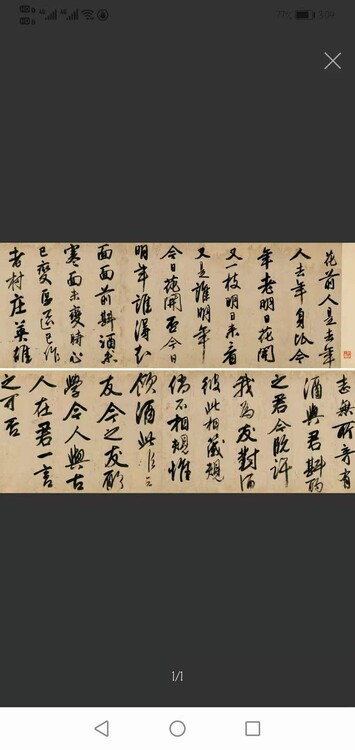 77% 3:04
花前人是去年
人去年身比今
年老明日花開
又一枝明日來看
又是誰明年
今日花開否今日
明年誰得知
面面前斟酒
寒面未變時心
已變區區已作
老村莊英雄
志無所寄有
酒與君斟酌
之君今既許
我為友對酒
彼此相箴規
倘不相規惟
飲酒此非
友今之友
學今人與古
人在君一言
之可否
1/1